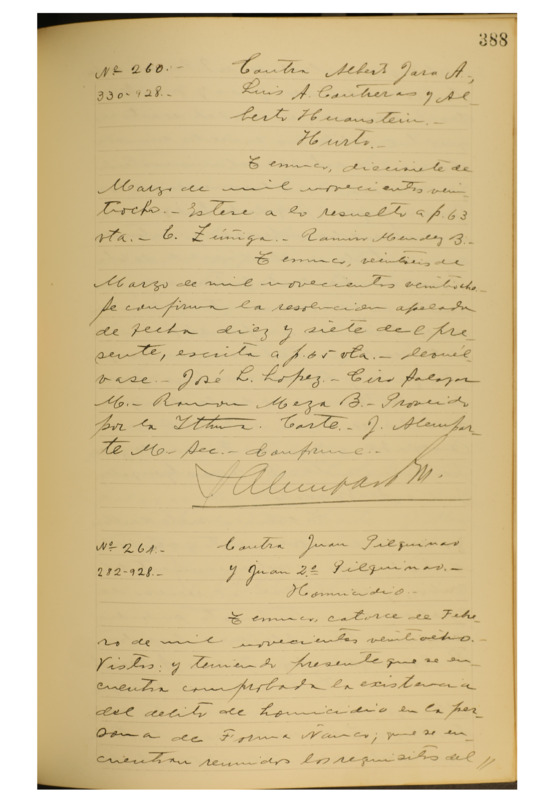 388
Nº 260.- Contra Albert Jara A.,
330-928.- Luis A. Contreras y Al-
berto Huanstein.-
Hurto.-
Temuco, diecisiete de
Marzo de mil novecientos vein-
tiocho.- Estese a lo resuelto a f. 63
vta.- C. Zúñiga.- Ramiro Mendez B.-
Temuco, veintiseis de
Marzo de mil novecientos veintiocho.-
Se confirma la resolucion apelada
de fecha diez y siete del pre-
sente, escrita a f. 65 vta.- Devuél-
vase.- José L. Lopez.- Ciro Salazar
M.- Ramon Meza B.- Proveido
por la Iltma. Corte.- J. Alempar-
te M.- Sec.- Conforme.-
J Alemparte M.
Nº 261.- Contra Juan Pilquinao
282-928.- y Juan 2.º Pilquinao.-
Homicidio.-
Temuco, catorce de Febre-
ro de mil novecientos veintiocho.-
Vistos: y teniendo presente que se en-
cuentra comprobada la existencia
del delito de homicidio en la per-
sona de Forma Ñanco; que se en-
cuentran reunidos los requisitos del //